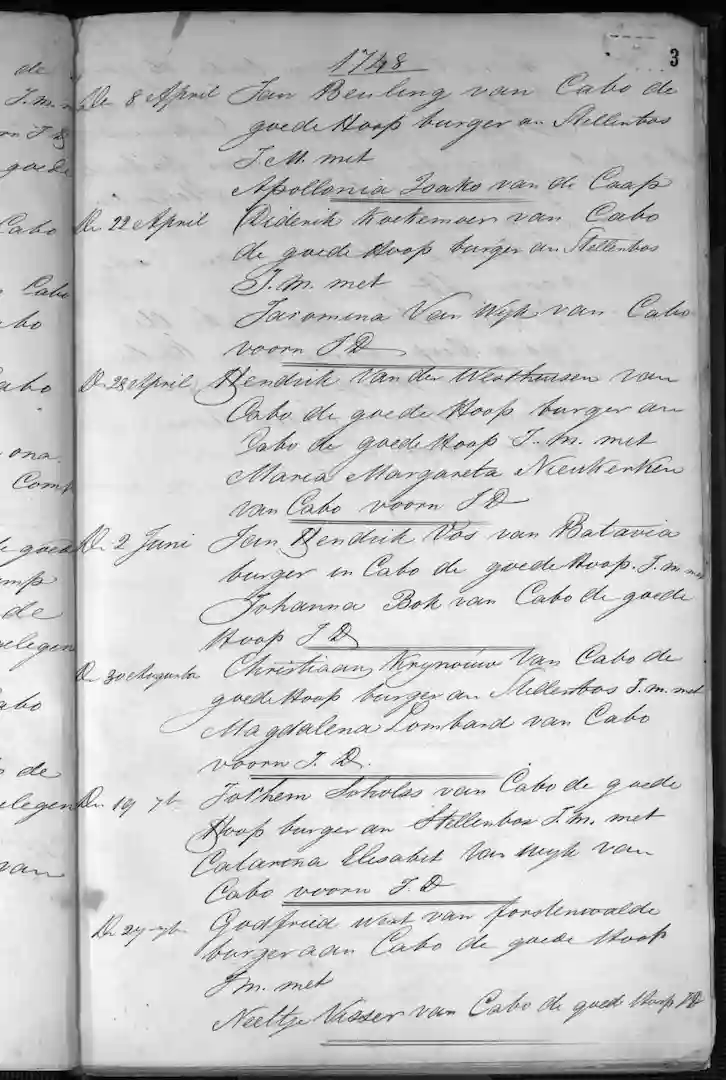 de
J. m.
goede
Cabo
Cabo
bo
abo
ona
Comp
goed
de
elegen
abo
de
elegen
van
3
1748
De 8 April Jan Beuling van Cabo de
goede Hoop burger an Stellenbos
J. M. met
Apollonia Isako van de Caap
De 22 April Diderik Koekemoer van Cabo
de goede Hoop burger an Stellenbos
J. m. met
Jacomina Van Wyk van Cabo
voorn J D
De 28 April Hendrik Van der Westhuisen van
Cabo de goede Hoop burger an
Cabo de goede Hoop J. m. met
Maria Margareta Nieukerken
van Cabo voorn J D
De 2 Juni Jan Hendrik Vos van Batavia
burger in Cabo de goede Hoop. J. m met
Johanna Bok van Cabo de goede
Hoop J D
De 30 Christiaan Krynouw Van Cabo de
goede Hoop burger an Stellenbos J. m. met
Magdalena Lombard van Cabo
voorn J. D.
De 19 7b Jochem Scholss van Cabo de goede
Hoop burger an Stellenbos J. m. met
Catarina Elisabet Van Wyk van
Cabo voorn J. D
De 27 7b Godfried West van forstenwalde
burger aan Cabo de goede Hoop
J m. met
Neeltje Visser van Cabo de goede Hoop J D